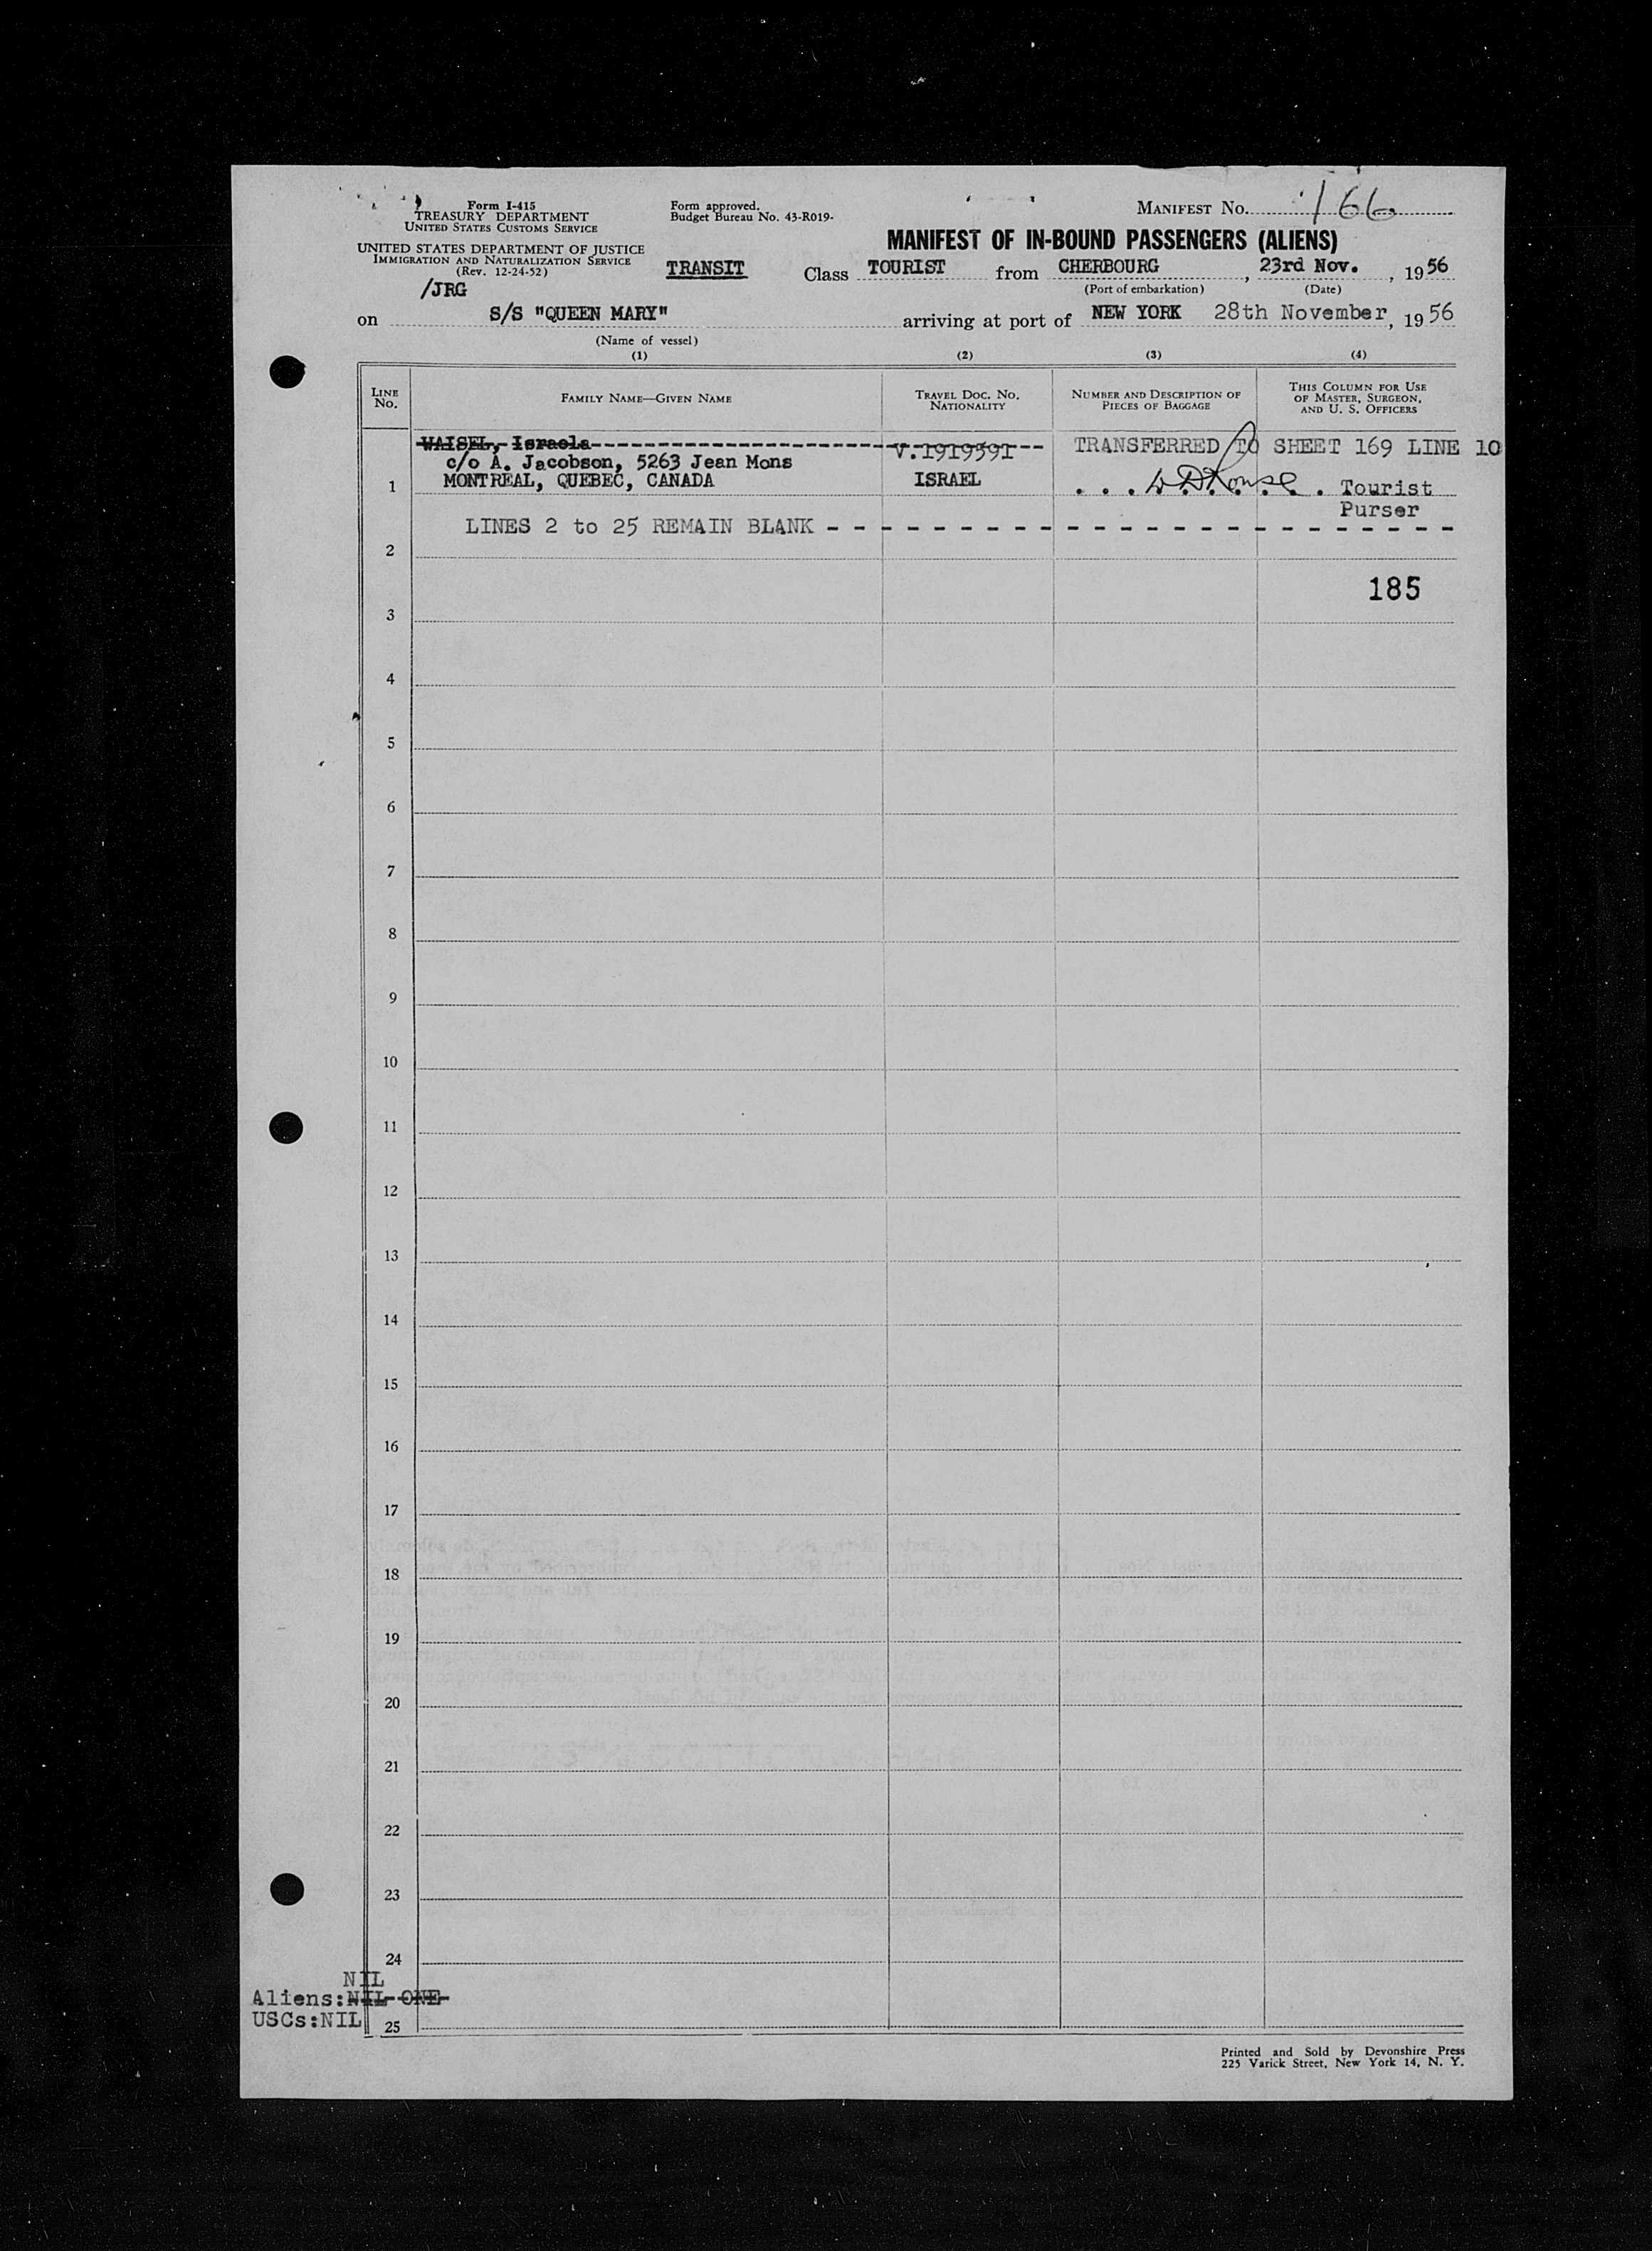 Form I-415
TREASURY DEPARTMENT
UNITED STATES CUSTOMS SERVICE
Form approved.
Budget Bureau No. 43-R019-
MANIFEST NO. 166
UNITED STATES DEPARTMENT OF JUSTICE
IMMIGRATION AND NATURALIZATION SERVICE
(Rev. 12-24-52)
/JRG
MANIFEST OF IN-BOUND PASSENGERS (ALIENS)
TRANSIT Class TOURIST from CHERBOURG, 23rd Nov., 1956
(Port of embarkation) (Date)
on S/S "QUEEN MARY" arriving at port of NEW YORK 28th November, 1956
(Name of vessel)
(1) (2) (3) (4)
LINE NO.
FAMILY NAME—GIVEN NAME
TRAVEL DOC. NO. NATIONALITY
NUMBER AND DESCRIPTION OF PIECES OF BAGGAGE
THIS COLUMN FOR USE OF MASTER, SURGEON, AND U. S. OFFICERS
WAISEL, Israela V.1919391 TRANSFERRED TO SHEET 169 LINE 10
c/o A. Jacobson, 5263 Jean Mons
1 MONTREAL, QUEBEC, CANADA ISRAEL Tourist
Purser
LINES 2 to 25 REMAIN BLANK
2
185
3
4
5
6
7
8
9
10
11
12
13
14
15
16
17
18
19
20
21
22
23
24
NIL
Aliens:NIL ONE
USCs:NIL
25
Printed and Sold by Devonshire Press
225 Varick Street, New York 14, N. Y.